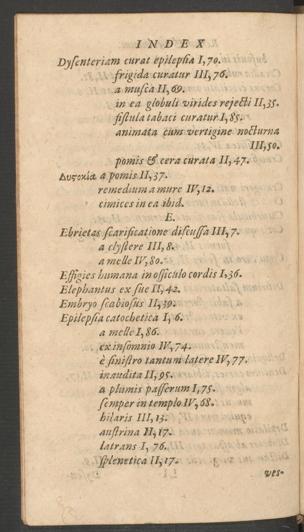 INDEX
Dysenteriam curat epilepsia I, 70.
frigida curatur III, 76.
a musca II, 69.
in ea globuli virides rejecti II, 35.
fistula tabaci curatur I, 85.
animata cum vertigine nocturna
III, 50.
pomis & cera curata II, 47.
a pomis II, 37.
remedium a mure IV, 12.
cimices in ea ibid.
E.
Ebrietas scarificatione discussa III, 7.
a clystere III, 8.
a melle IV, 80.
Effigies humana in ossiculo cordis I. 36.
Elephantus ex sue II, 42.
Embryo scabiosus II, 39.
Epilepsia catochetica I, 6.
a melle I, 86.
ex insomnio IV, 74.
è sinistro tantum latere IV, 77.
inaudita II, 95.
a plumis passerum I, 75.
semper in templo IV, 68.
hilaris III, 13.
austrina II, 17.
latrans I, 76.
splenetica II, 17.
ves-